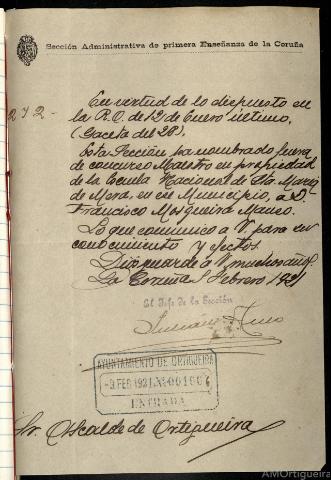 Sección Administrativa de primera Enseñanza de la Coruña
272-
En virtud de lo dispuesto en
la R.O. de 12 de Enero último,
(Gaceta del 28),
Esta Sección ha nombrado fuera
de concurso Maestro en propiedad
de la Escuela Nacional de Sta. María
de Mera, en ese Municipio, a D.
Francisco Mosqueira Manso.
Lo que comunico a V. para su
conocimiento y efectos.
Dios guarde a V. muchos años.
La Coruña Febrero 1921
El Jefe de la Sección
AYUNTAMIENTO DE ORTIGUEIRA
FEB 1921
ENTRADA
Sr. Alcalde de Ortigueira
AMOrtigueira